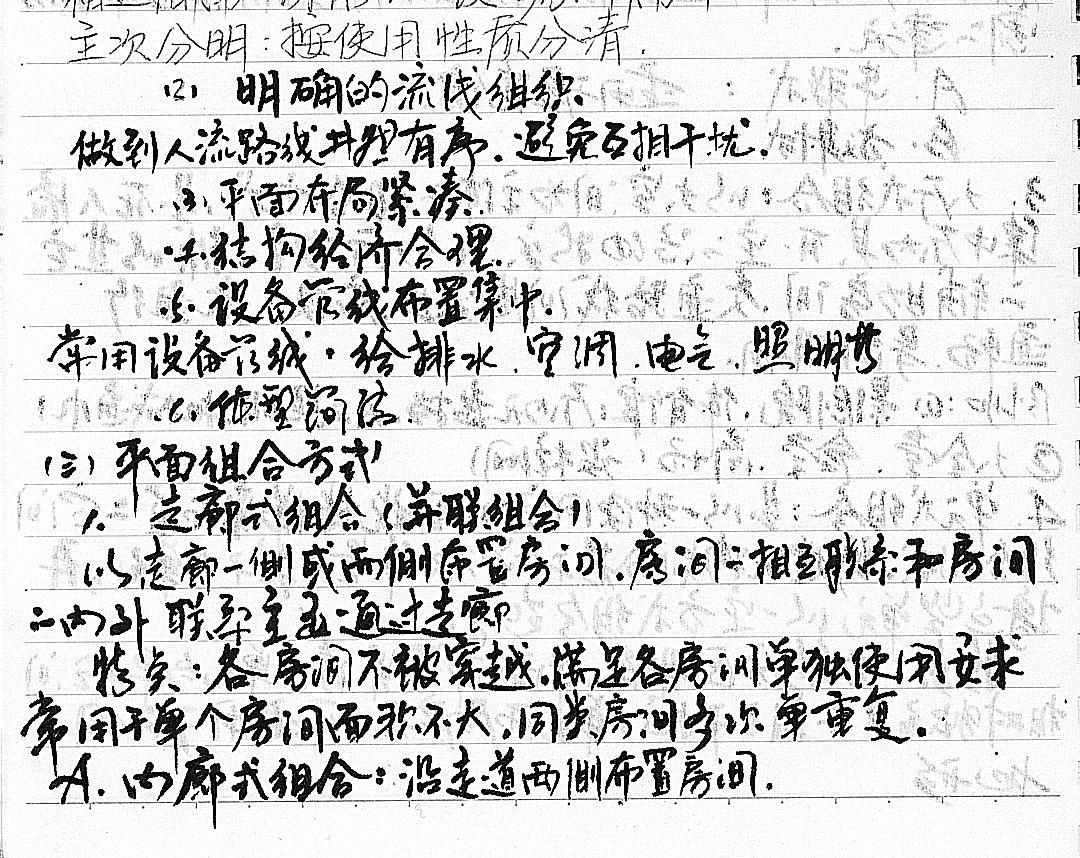 主次分明：按使用性质分清.
(2) 明确的流线组织.
做到人流路线井然有序.避免互相干扰.
(3) 平面布局紧凑.
(4) 结构经济合理.
(5) 设备管线布置集中.
常用设备管线：给排水.空调.电气.照明等
(6) 体型简洁
(三) 平面组合方式
1. 走廊式组合(并联组合)
以走廊一侧或两侧布置房间.房间之相互联系和房间
之内外联系主要通过走廊
特点：各房间不被穿越.满足各房间单独使用要求
常用于单个房间面积不大.同类房间多次重复.
A. 内廊式组合：沿走道两侧布置房间.